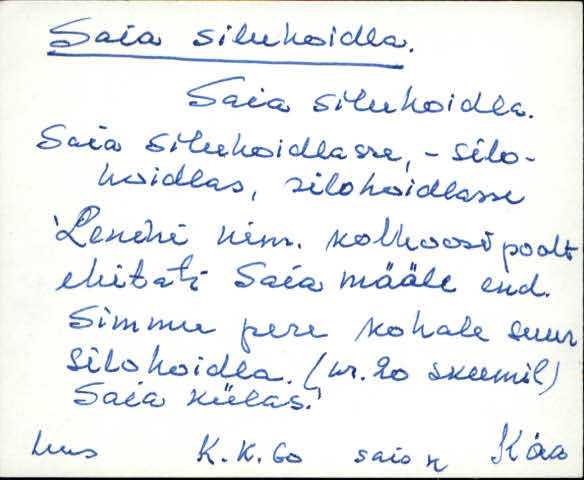 Saia siluhoidla.
Saia siluhoidla.
Saia siluhoidlasse, - silo-
hoidlas, silohoidlasse
'Lenini nim. kolhoosi poolt
ehitati Saia määle end.
Simmu pere kohale suur
silohoidla. (nr. 20 skeemil)
Saia külas.'
K.K. 60 Kää